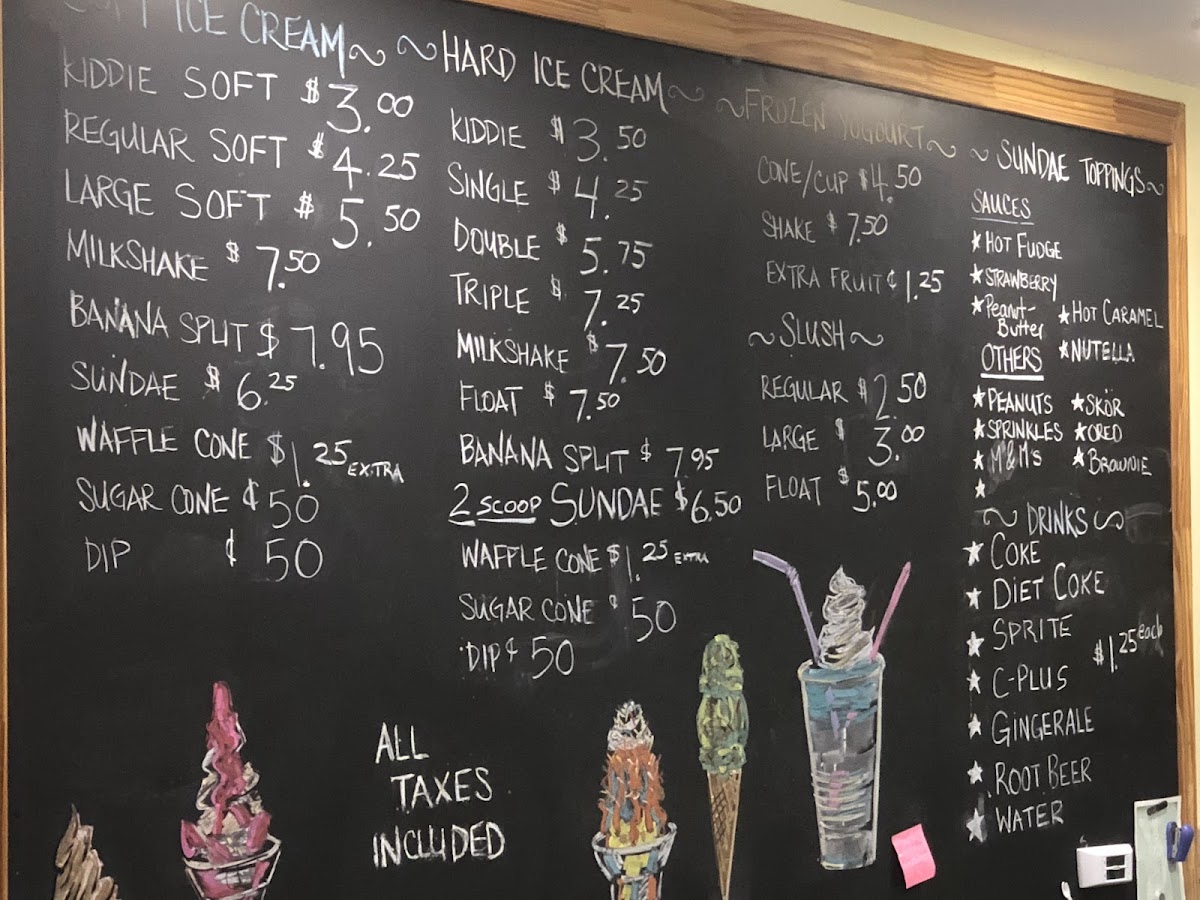 ICE CREAM
KIDDIE SOFT $3.00
REGULAR SOFT $4.25
LARGE SOFT $5.50
MILKSHAKE $7.50
BANANA SPLIT $7.95
SUNDAE $6.25
WAFFLE CONE $1.25 EXTRA
SUGAR CONE ¢50
DIP ¢50
~HARD ICE CREAM~
KIDDIE $3.50
SINGLE $4.25
DOUBLE $5.75
TRIPLE $7.25
MILKSHAKE $7.50
FLOAT $7.50
BANANA SPLIT $7.95
2 SCOOP SUNDAE $6.50
WAFFLE CONE $1.25 EXTRA
SUGAR CONE ¢50
DIP ¢50
~FROZEN YOGOURT~
CONE/CUP $4.50
SHAKE $7.50
EXTRA FRUIT ¢1.25
~SLUSH~
REGULAR $2.50
LARGE $3.00
FLOAT $5.00
~SUNDAE TOPPINGS~
SAUCES
★HOT FUDGE
★STRAWBERRY
★Peanut-
Butter
★HOT CARAMEL
★NUTELLA
OTHERS
★PEANUTS
★SPRINKLES
★M&M's
★
★SKOR
★OREO
★BROWNIE
~DRINKS~
★COKE
★DIET COKE
★SPRITE
★C-PLUS
★GINGERALE
★ROOT BEER
★WATER
$1.25 each
ALL
TAXES
INCLUDED